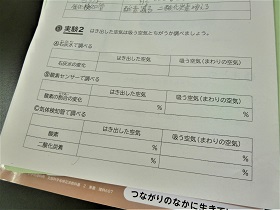 実験2
はき出した空気は吸う空気とちがうか調べましょう。
Ⓐ石灰水で調べる
はき出した空気 吸う空気(まわりの空気)
石灰水の変化
Ⓑ酸素センサーで調べる
はき出した空気 吸う空気(まわりの空気)
酸素の割合の変化 % %
Ⓒ気体検知管で調べる
はき出した空気 吸う空気(まわりの空気)
酸素 % %
二酸化炭素 % %
つながりのなかに生きて